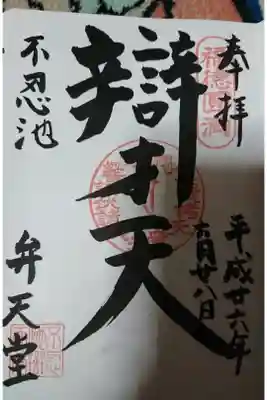 奉拝
平成廿六年
六月廿八日
辯才天
不忍池
弁天堂